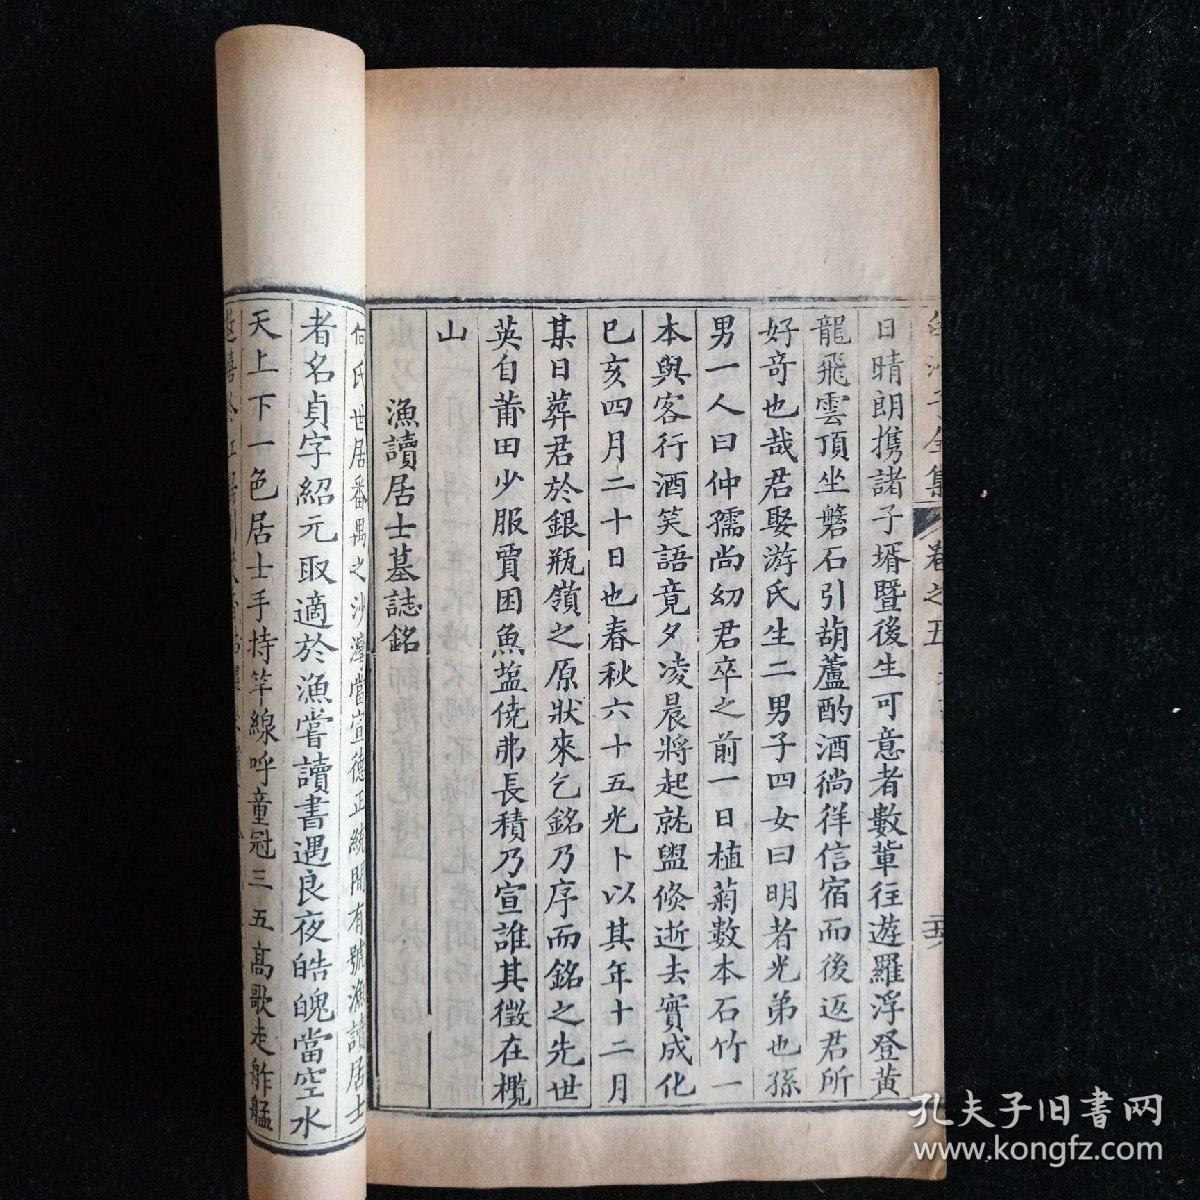 子全集
卷之五
日晴朗携諸子壻暨後生可意者數軰往遊羅浮登黄
龍飛雲頂坐磐石引葫蘆酌酒徜徉信宿而後返君所
好奇也哉君娶游氏生二男子四女曰明者光弟也孫
男一人曰仲孺尚幼君卒之前一日植菊數本石竹一
本與客行酒笑語竟夕凌晨將起就盥倏逝去實成化
巳亥四月二十日也春秋六十五光卜以其年十二月
某日葬君於銀瓶嶺之原狀來乞銘乃序而銘之先世
英自莆田少服賈困魚盐侥弗長積乃宣誰其徵在欖
山
漁讀居士墓誌銘
何氏世居番禺之沙灣當宣德正統間有號漁讀居士
者名貞字紹元取適於漁嘗讀書遇良夜皓魄當空水
天上下一色居士手持竿線呼童冠三五高歌走舴艋
孔夫子旧书网
www.kongfz.com